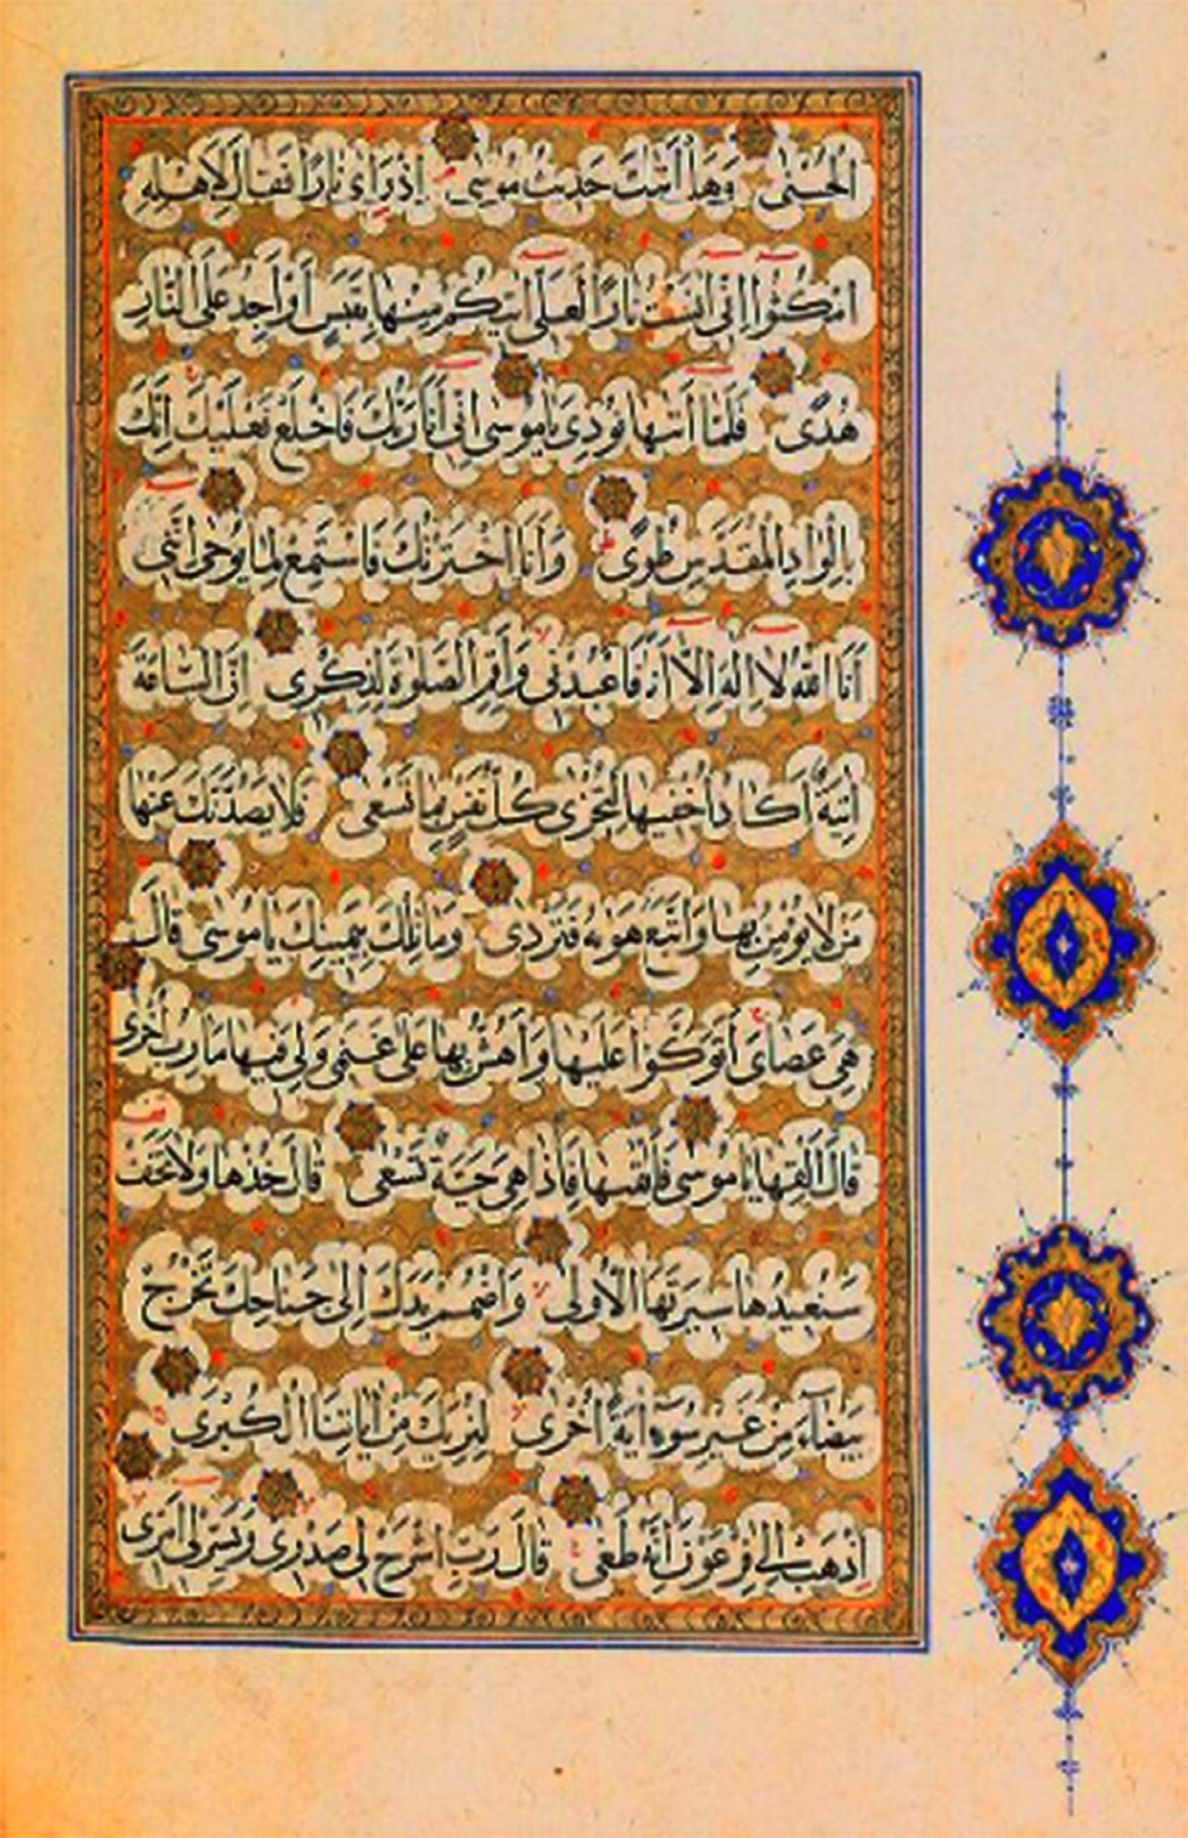 الْحُسْنٰى وَهَلْ أَتٰيكَ حَدِيثُ مُوسٰى إِذْ رَاٰى نَارًا فَقَالَ لِأَهْلِهِ
امْكُثُوا إِنّٰى اٰنَسْتُ نَارًا لَعَلّٰى اٰتِيكُمْ مِنْهَا بِقَبَسٍ أَوْ أَجِدُ عَلَى النَّارِ
هُدًى فَلَمَّا أَتٰيهَا نُودِىَ يَامُوسٰى إِنّٰى أَنَا رَبُّكَ فَاخْلَعْ نَعْلَيْكَ إِنَّكَ
بِالْوَادِ الْمُقَدَّسِ طُوًى وَأَنَا اخْتَرْتُكَ فَاسْتَمِعْ لِمَا يُوحٰى إِنَّنِى
أَنَا اللّٰهُ لَا إِلٰهَ إِلَّا أَنَا۠ فَاعْبُدْنِى وَأَقِمِ الصَّلٰوةَ لِذِكْرِى إِنَّ السَّاعَةَ
اٰتِيَةٌ أَكَادُ أُخْفِيهَا لِتُجْزٰى كُلُّ نَفْسٍ بِمَا تَسْعٰى فَلَا يَصُدَّنَّكَ عَنْهَا
مَنْ لَا يُؤْمِنُ بِهَا وَاتَّبَعَ هَوٰيهُ فَتَرْدٰى وَمَا تِلْكَ بِيَمِينِكَ يَامُوسٰى قَالَ
هِىَ عَصَاىَ أَتَوَكَّؤُا عَلَيْهَا وَأَهُشُّ بِهَا عَلٰى غَنَمِى وَلِىَ فِيهَا مَاٰرِبُ أُخْرٰى
قَالَ أَلْقِهَا يَامُوسٰى فَأَلْقٰيهَا فَإِذَا هِىَ حَيَّةٌ تَسْعٰى قَالَ خُذْهَا وَلَا تَخَفْ
سَنُعِيدُهَا سِيرَتَهَا الْأُولٰى وَاضْمُمْ يَدَكَ إِلٰى جَنَاحِكَ تَخْرُجْ
بَيْضَاءَ مِنْ غَيْرِ سُوءٍ اٰيَةً أُخْرٰى لِنُرِيَكَ مِنْ اٰيَاتِنَا الْكُبْرٰى
اِذْهَبْ إِلٰى فِرْعَوْنَ إِنَّهُ طَغٰى قَالَ رَبِّ اشْرَحْ لِى صَدْرِى وَيَسِّرْ لِى أَمْرِى